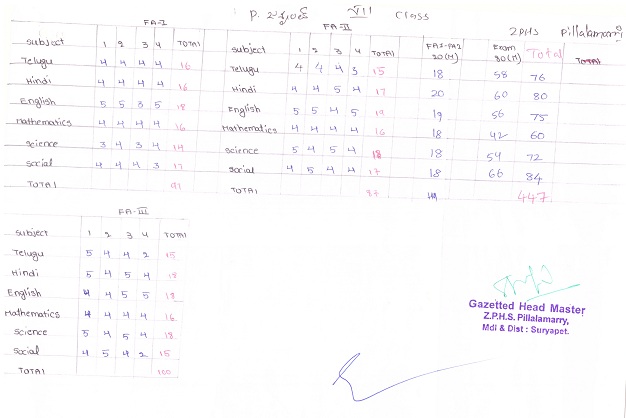 P. VII Class
ZPHS Pillalamarri
FA-I
Subject 1 2 3 4 TOTAL
Telugu 4 4 4 4 16
Hindi 4 4 4 4 16
English 5 5 3 5 18
Mathematics 4 4 4 4 16
Science 3 4 3 4 14
Social 4 4 4 3 17
TOTAL 91
FA-II
Subject 1 2 3 4 TOTAL FA1-FA2 20(M) Exam 80(M) Total Total
Telugu 4 4 4 3 15 18 58 76
Hindi 4 4 5 4 17 20 60 80
English 5 5 4 5 19 19 56 75
Mathematics 4 4 4 4 16 18 42 60
Science 5 4 5 4 18 18 54 72
Social 4 5 4 4 17 18 66 84
TOTAL 447
FA-III
Subject 1 2 3 4 TOTAL
Telugu 5 4 4 2 15
Hindi 5 4 5 4 18
English 4 4 5 5 18
Mathematics 4 4 4 4 16
Science 5 4 5 4 18
Social 4 5 4 2 15
TOTAL 100
Gazetted Head Master
Z.P.H.S. Pillalamarry,
Mdl & Dist : Suryapet.